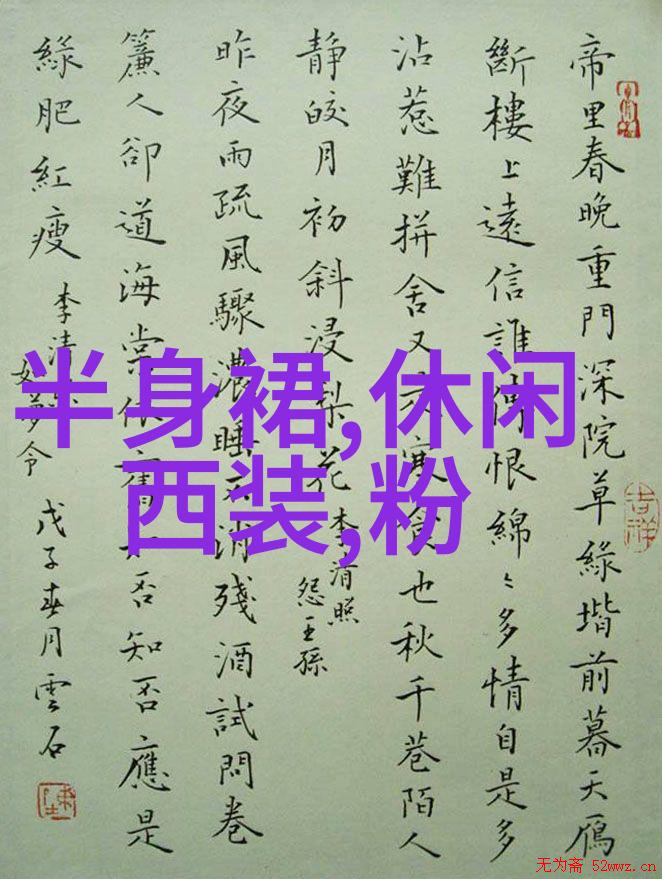 帝里春晚重門深院草綠堦前暮天鴈
斷樓上遠信誰傳恨綿〻多情自是多
沾惹難拼舍又是寒食也秋千巷陌人
靜皎月初斜浸梨花 李清照
怨王孫
昨夜雨疏風驟濃睡不消殘酒試問卷
簾人卻道海棠依舊知否知否應是
綠肥紅瘦 李清照
如夢令 戊子春月雲石
半身裙,休闲
西装,粉
吉祥
无为斋 52wwz.cn